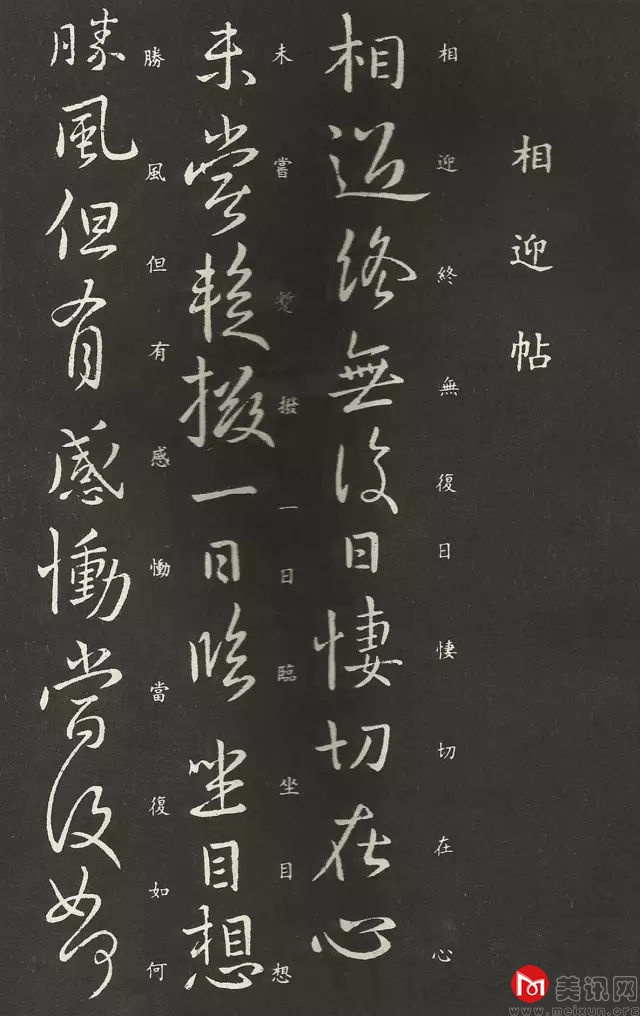 相迎帖
相迎終無復日悽切在心
相迎終無復日悽切在心
未嘗暫撥一日臨坐目想
未嘗暫撥一日臨坐目想
勝風但有感慟當復如何
勝風但有感慟當復如何
美讯网
www.meixun.org